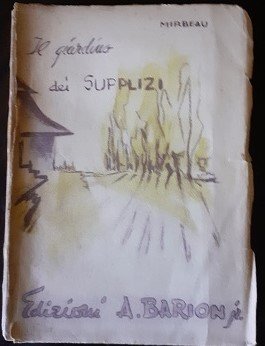 MIRBEAU
Il giardino
dei SUPPLIZI
Edizioni A. BARION jr.